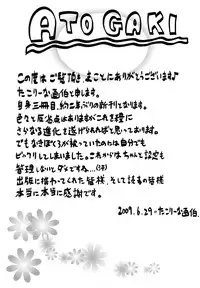 ATOGAKI
この度はご覧頂き、まことにありがとうございます♪
たこりーな画伯と申します。
自身三冊目、約二年ぶりの新刊となります。
色々と反省点はありますがこれを糧に
さらなる進化を遂げられればと思っております。
でもなきぼくろが被っていたのには自分でも
ビックリしてしまいました。これからはちゃんと設定も
管理しないとダメですね…(汗)
出版に携わってくれた皆様、そして読者の皆様
本当に本当に感謝です。
2009.6.29 -たこりーな画伯.